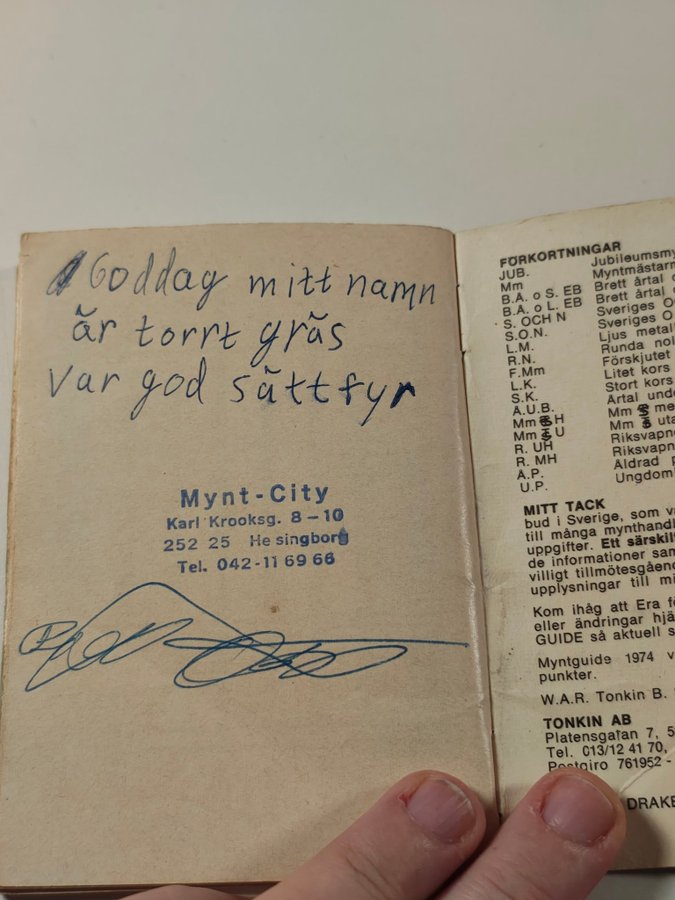 Goddag mitt namn
är torrt gräs
Var god sätt fyr
Mynt-City
Karl Krooksg. 8-10
252 25 He singborg
Tel. 042-11 69 66
FÖRKORTNINGAR
JUB. Jubileumsmy
Mm Myntmästarm
B.Å. o S. EB Brett årtal o
B.Å. o L. EB Brett årtal
S. OCH N Sveriges O
S.O.N. Sveriges O
L.M. Ljus metal
R.N. Runda nol
F.Mm Förskjutet
L.K. Litet kors
S.K. Stort kors
Å.U.B. Årtal unde
Mm H Mm me
Mm U Mm uta
R. UH Riksvapne
R. MH Riksvapn
Ä.P. Äldrad p
U.P. Ungdom
MITT TACK
bud i Sverige, som va
till många mynthandl
uppgifter. Ett särskil
de informationer sam
villigt tillmötesgåend
upplysningar till mi
Kom ihåg att Era fö
eller ändringar hjä
GUIDE så aktuell s
Myntguide 1974 v
punkter.
W.A.R. Tonkin B.
TONKIN AB
Platensgatan 7, 5
Tel. 013/12 41 70,
Postgiro 761952 -
DRAKE